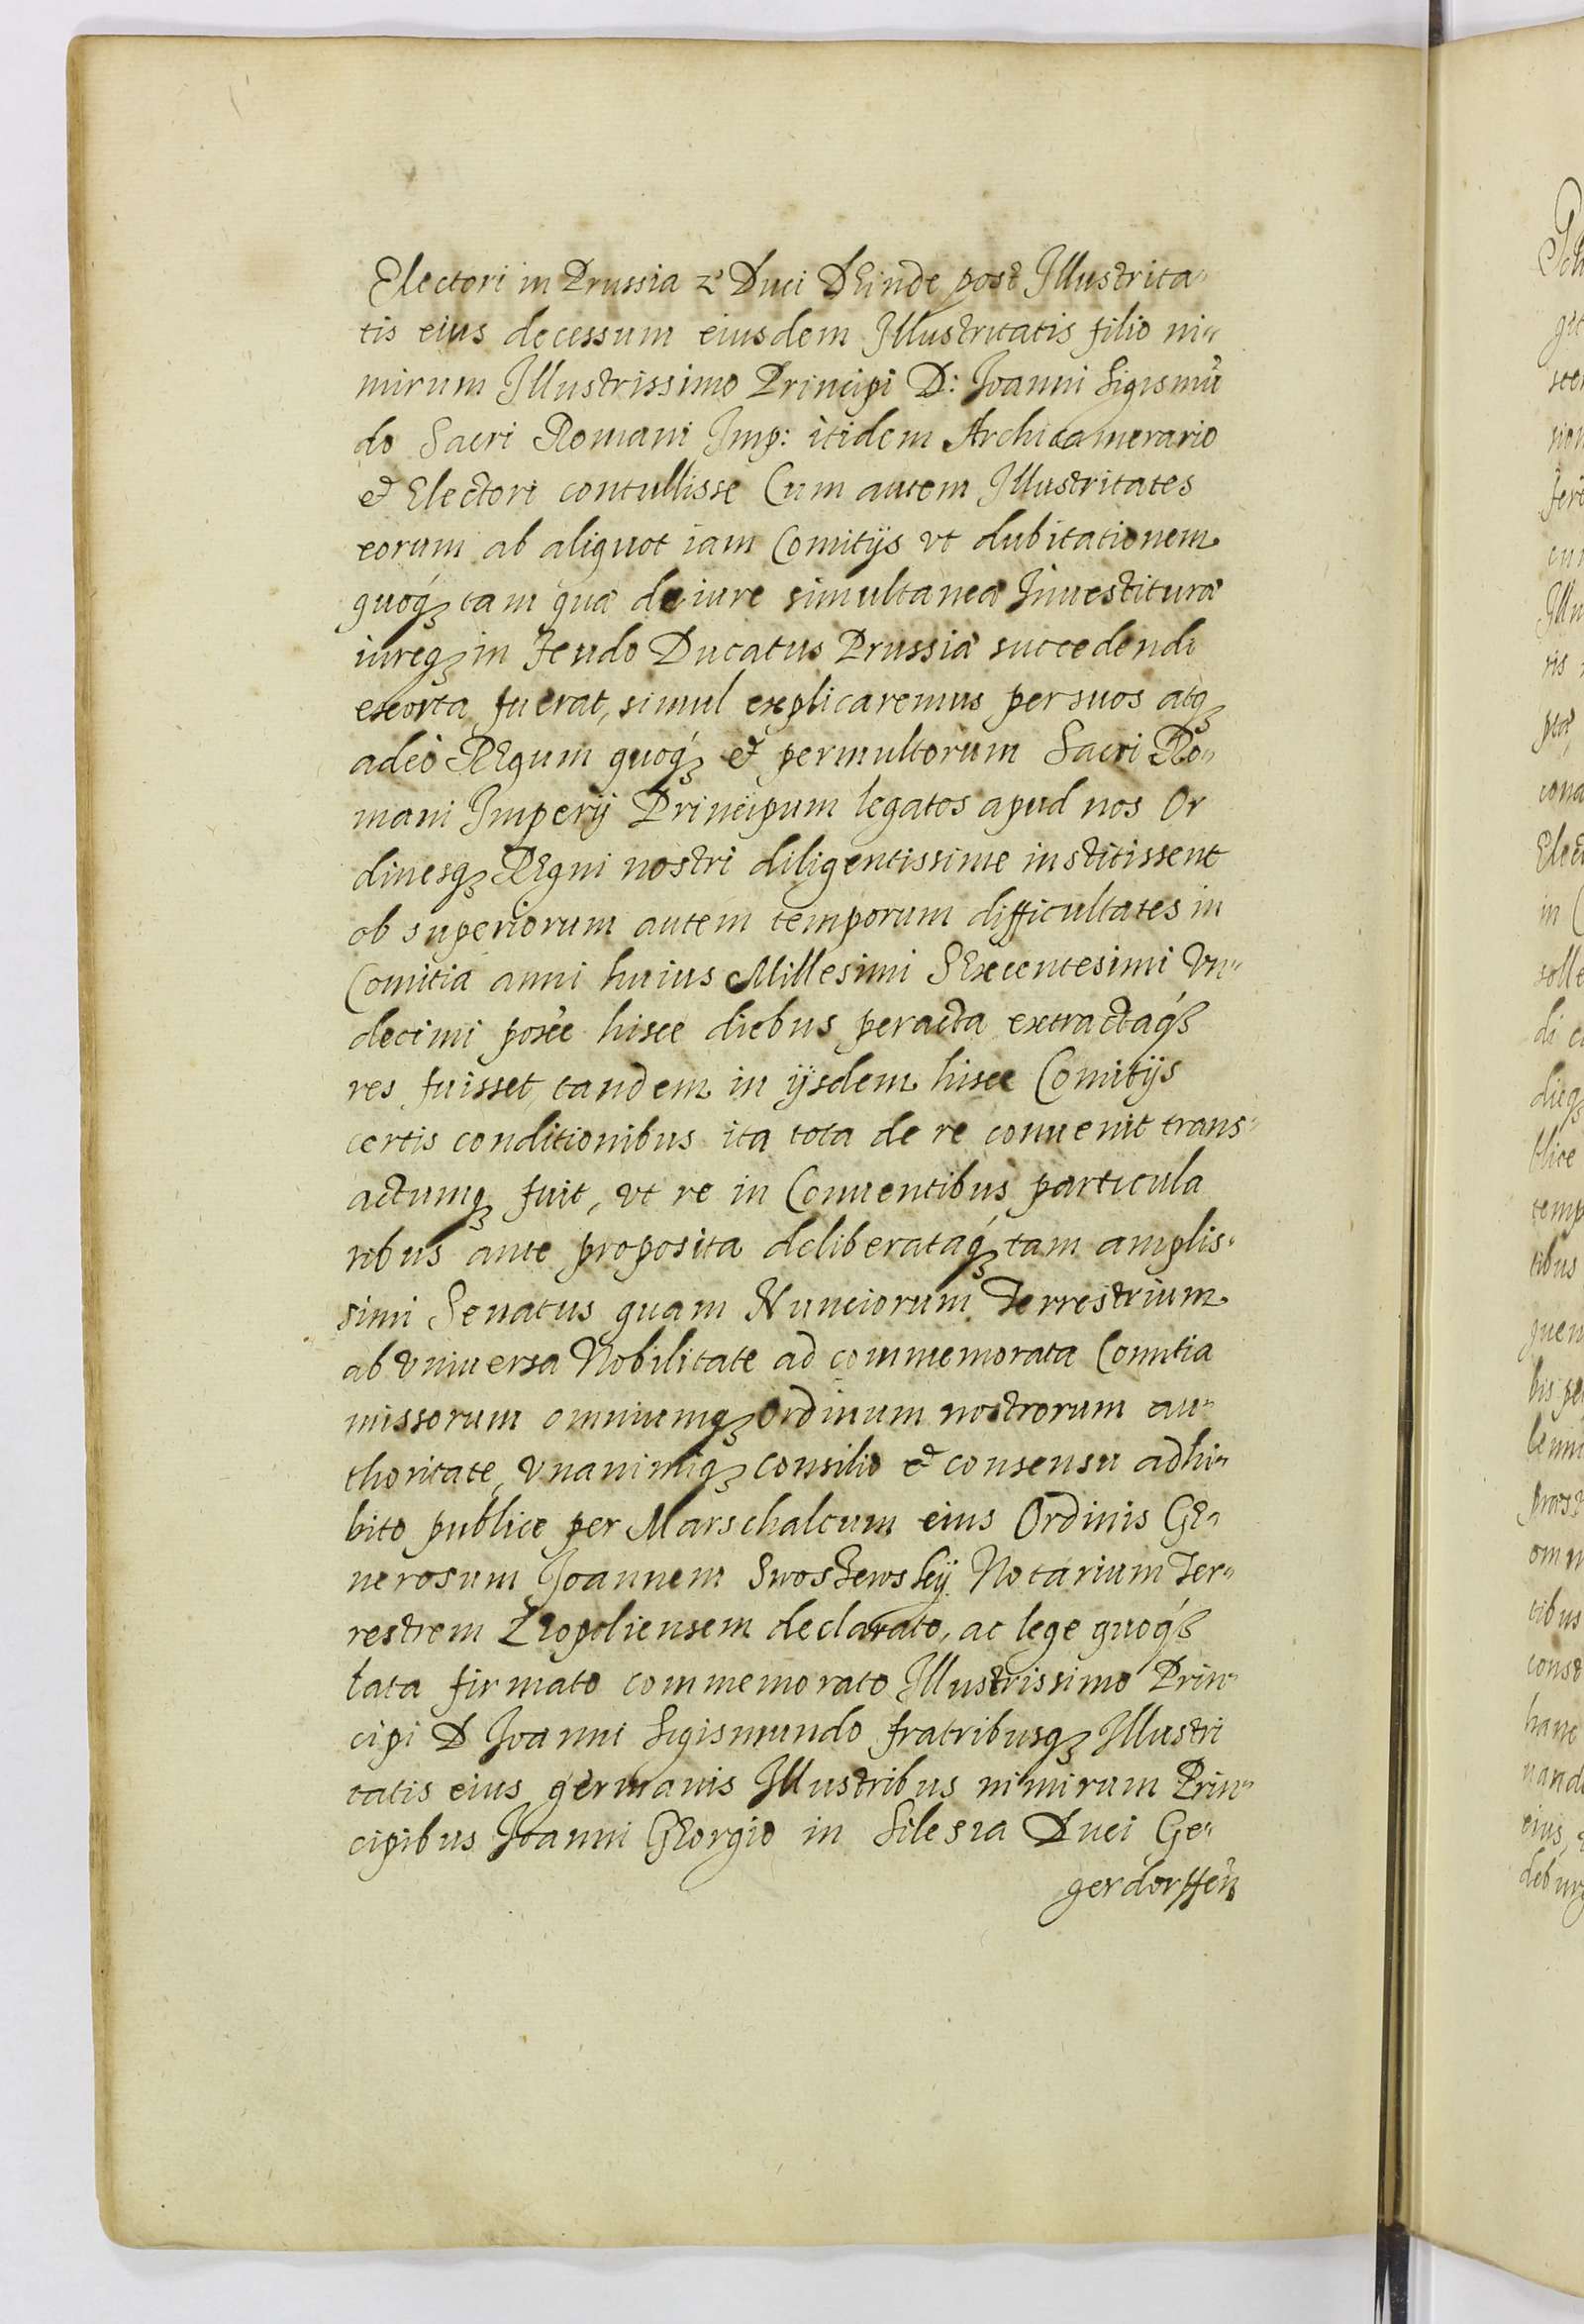 Electori in Prussia &c Duci Deinde post Illustrita„
tis eius decessum eiusdem Illustritatis filio ni„
mirum Illustrissimo Principi D: Joanni Sigismū
do Sacri Romani Imp: itidem Archicamerario
et Electori contullisse Cum autem Illustritates
eorum ab aliquot iam Comitijs vt dubitationem
quoq́ꝫ tam quæ de iure simultaneæ Inuestituræ
iureqꝫ in Feudo Ducatus Prussiæ succedendi
exorta fuerat, simul explicaremus per suos atqꝫ
adeò Regum quoq́ꝫ et permultorum Sacri Ro„
mani Imperij Principum legatos apud nos Or
dinesqꝫ Regni nostri diligentissime institissent
ob superiorum autem temporum difficultates in
Comitia anni huius Millesimi Sexcentesimi Vn„
decimi hisce diebus peracta extractaq́ꝫ
res fuisset, tandem in ijsdem hisce Comitijs
certis conditionibus ita tota de re conuenit trans„
actumqꝫ fuit, vt re in Conuentibus particula
ribus ante proposita deliberataq́ꝫ tam amplis„
simi Senatus quam Nunciorum Terrestrium
ab vniuersa Nobilitate ad commemorata Comitia
missorum omniumqꝫ Ordinum nostrorum au„
thoritate, vnanimiqꝫ consilio et consensu adhi„
bito publice per Marschalcum eius Ordinis Ge„
nerosum Joannem Swoszewskij Notarium Ter„
restrem Leopoliensem declarato, ac lege quoq́ꝫ
lata firmato commemorato Illustrissimo Prin„
cipi D Joanni Sigismundo fratribusqꝫ Illustri
tatis eius germanis Illustribus nimirum Prin„
cipibus Joanni Georgio in Silesia Duci Ge„
gerdorffen